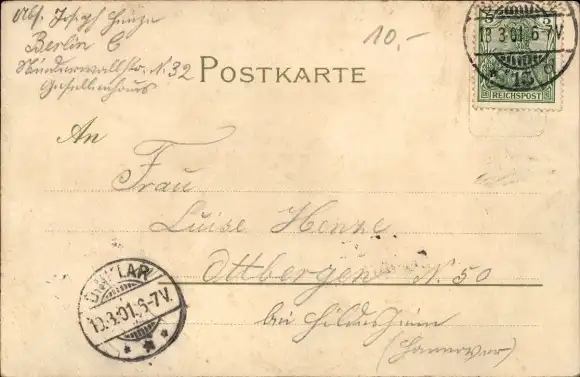 Abs. Joseph Henze
Berlin C
Niederwallstr. N. 32
Gesellenhaus
10,-
POSTKARTE
5 5
13.3.01.6-7V.
REICHSPOST
An
Frau
Luise Henze
Ottbergen N. 50
bei Hildesheim
(Hannover)
DINKLAR
13.3.01.6-7V.